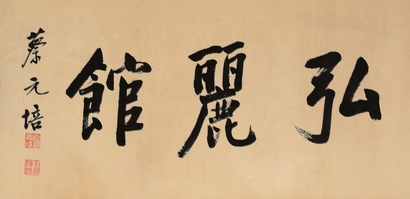 弘麗館
蔡元培